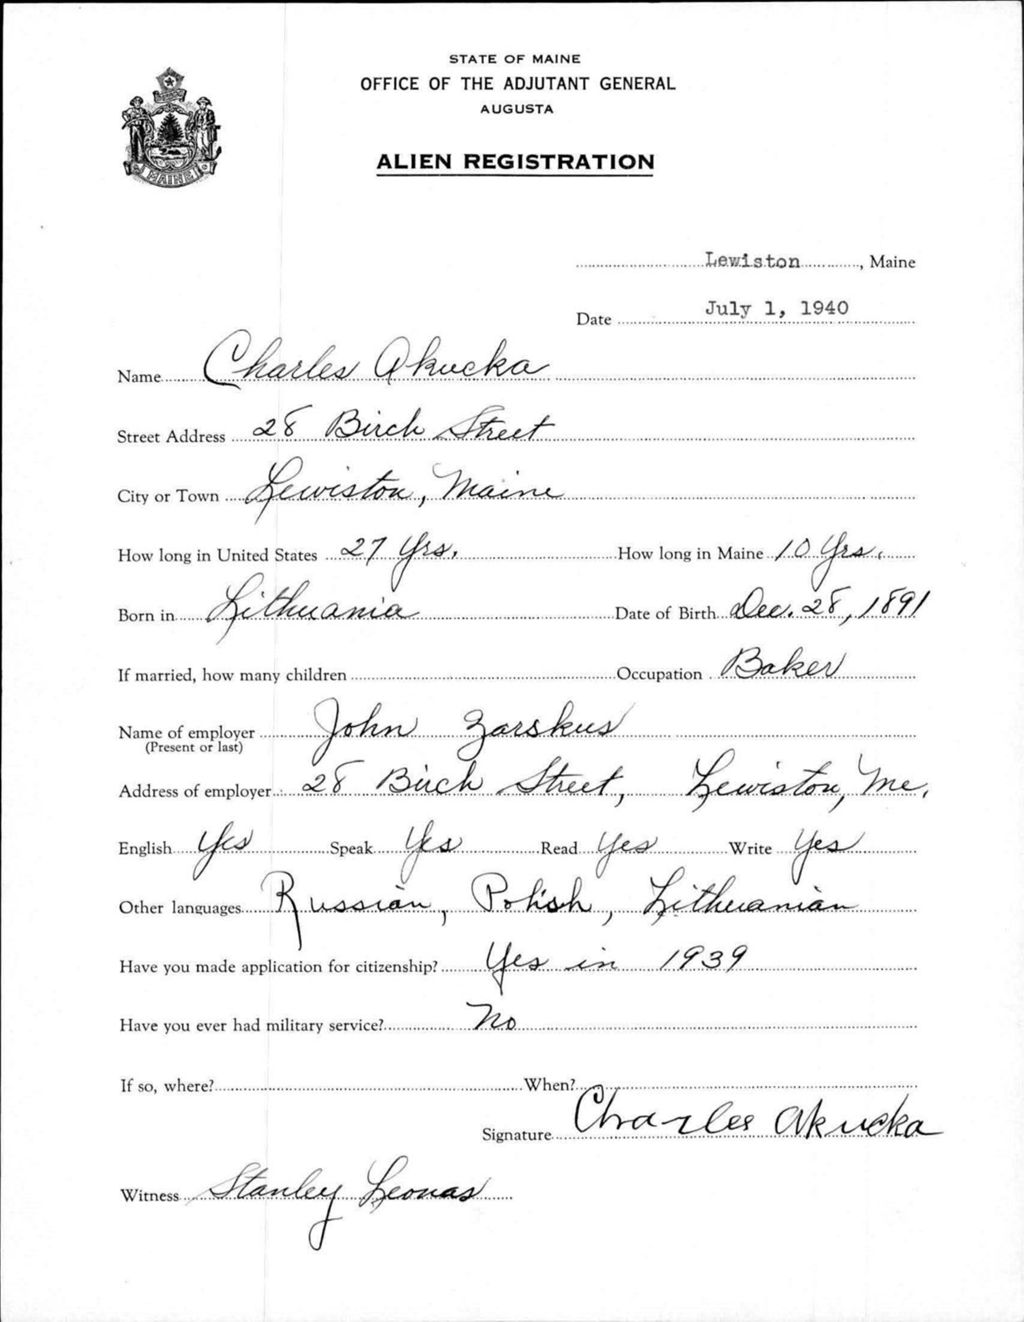 STATE OF MAINE
OFFICE OF THE ADJUTANT GENERAL
AUGUSTA
ALIEN REGISTRATION
MAINE
Lewiston, Maine
Date July 1, 1940
Name Charles Akucka
Street Address 28 Birch Street
City or Town Lewiston, Maine
How long in United States 27 Yrs. How long in Maine 10 Yrs.
Born in Lithuania Date of Birth Dec. 28, 1891
If married, how many children Occupation Baker
Name of employer John Zarskus
(Present or last)
Address of employer 28 Birch Street, Lewiston, Me.
English Yes Speak Yes Read Yes Write Yes
Other languages Russian, Polish, Lithuanian
Have you made application for citizenship? Yes in 1939
Have you ever had military service? No
If so, where? When?
Signature Charles Akucka
Witness Stanley Leonas